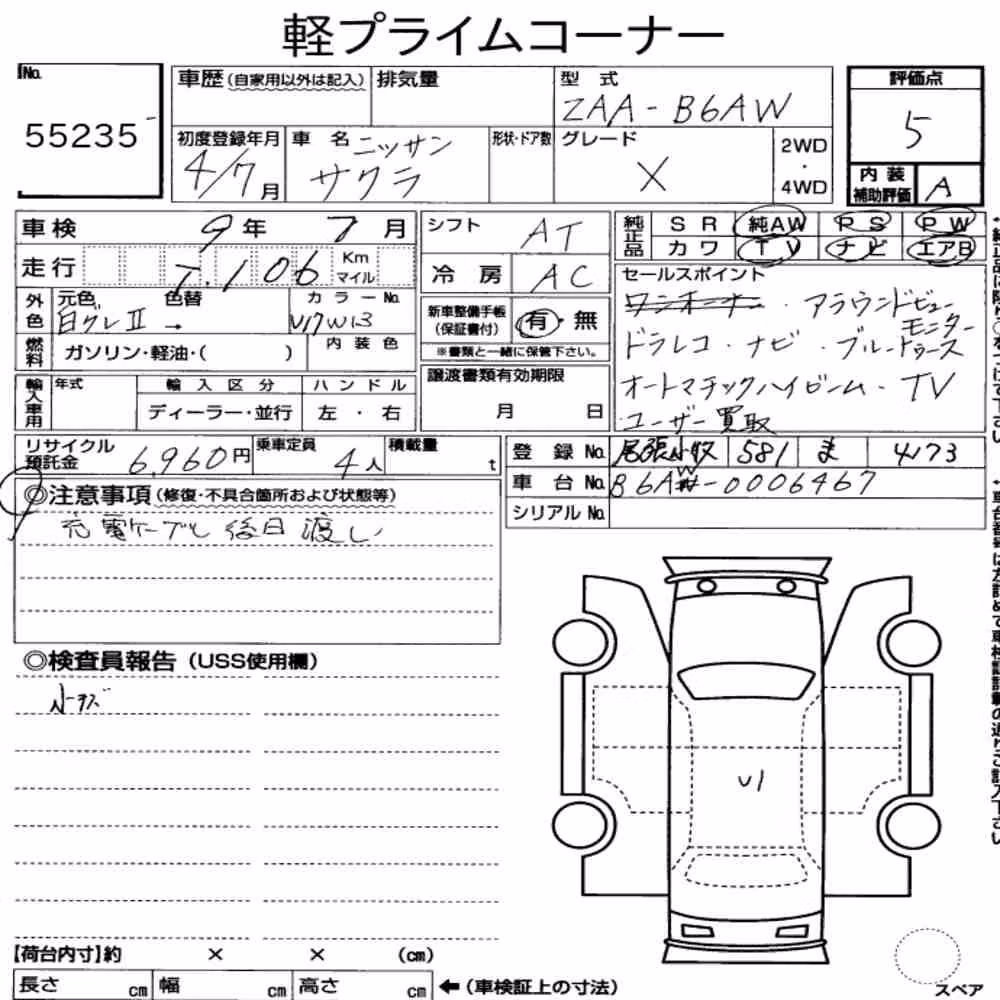 軽プライムコーナー
No.
55235
車歴(自家用以外は記入) 排気量 型式
ZAA-B6AW
初度登録年月 車名 ニッサン 形状・ドア数 グレード 2WD・4WD
4/7月 サクラ X
評価点
5
内装補助評価 A
車検 9年 7月
走行 7,106 Km マイル
外色 元色 色替 カラーNo. 
白クレII →
燃料 ガソリン・軽油・( ) 内装色
輸入車用 年式 輸入区分 ハンドル
ディーラー・並行 左・右
シフト AT
冷房 AC
新車整備手帳(保証書付) 有・無
※書類と一緒に保管下さい。
譲渡書類有効期限
月 日
純正品 SR 純AW PS PW
カワ TV ナビ エアB
セールスポイント
ワンオーナー・アラウンドビューモニター
ドラレコ・ナビ・ブルートゥース
オートマチックハイビーム・TV
ユーザー買取
リサイクル預託金 6,960円 乗車定員 4人 積載量 t
登録No. 尾張小牧 581 ま 4173
車台No. B6AW-0006467
シリアルNo.
◎注意事項(修復・不具合箇所および状態等)
充電ケーブル後日渡し
◎検査員報告(USS使用欄)
小キズ
U1
【荷台内寸】約 × × (cm)
長さ cm 幅 cm 高さ cm ←(車検証上の寸法)
スペア